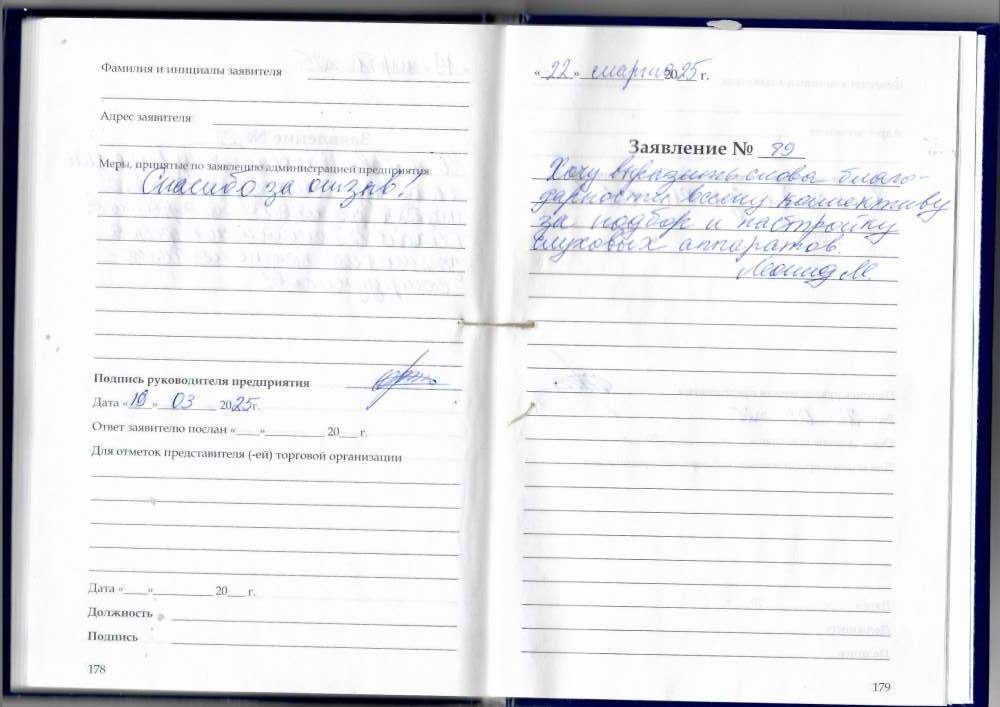 Фамилия и инициалы заявителя
Адрес заявителя
Меры, принятые по заявлению администрацией предприятия:
Спасибо за отзыв!
Подпись руководителя предприятия
Дата «10» 03 2025г.
Ответ заявителю послан «___»__________ 20___ г.
Для отметок представителя (-ей) торговой организации
Дата «____»__________ 20___ г.
Должность
Подпись
178
«22» марта 2025 г.
Заявление № 99
Хочу выразить слова благо-
дарности всему коллективу
за подбор и настройку
слуховых аппаратов.
Леонид М.
179